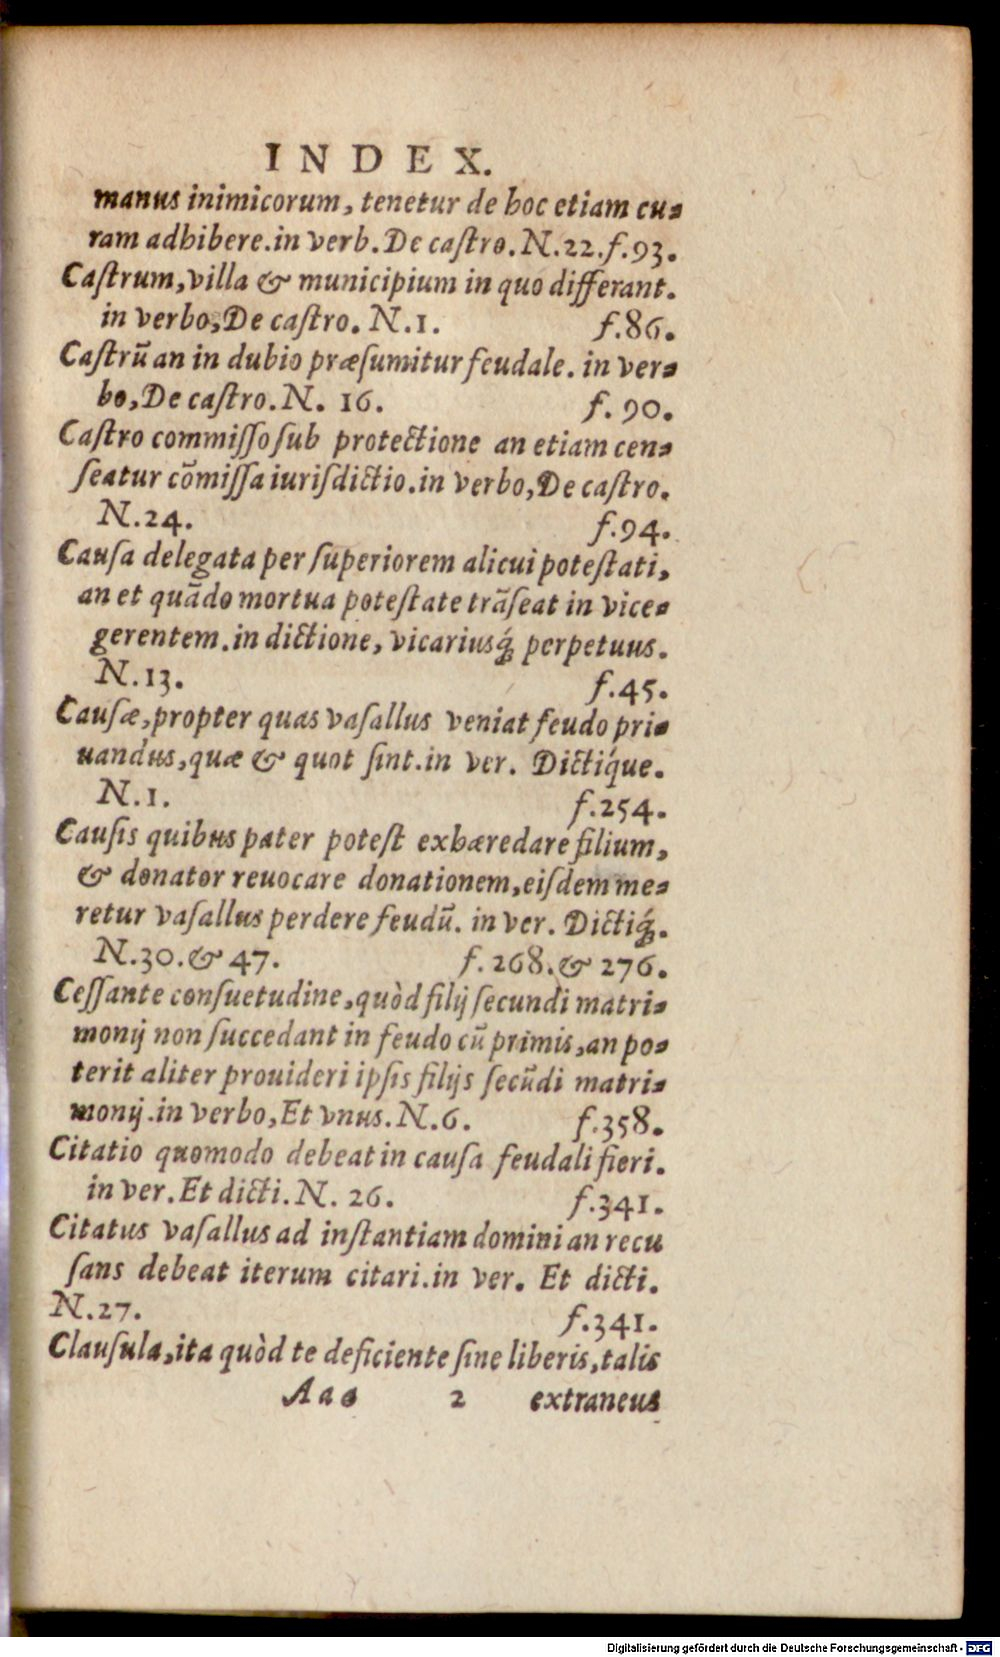 INDEX.
manus inimicorum, tenetur de hoc etiam cu-
ram adhibere. in verb. De caſtro. N. 22. f. 93.
Caſtrum, villa & municipium in quo differant.
in verbo, De caſtro. N. 1. f. 86.
Caſtrũ an in dubio præſumitur feudale. in ver-
bo, De caſtro. N. 16. f. 90.
Caſtro commiſſo ſub protectione an etiam cen-
ſeatur cõmiſſa iuriſdictio. in verbo, De caſtro.
N. 24. f. 94.
Cauſa delegata per ſuperiorem alicui poteſtati,
an et quãdo mortua poteſtate trãſeat in vice-
gerentem. in dictione, vicariusq́; perpetuus.
N. 13. f. 45.
Cauſæ, propter quas vaſallus veniat feudo pri-
uandus, quæ & quot ſint. in ver. Dictiq́ue.
N. 1. f. 254.
Cauſis quibus pater poteſt exhæredare filium,
& donator reuocare donationem, eiſdem me-
retur vaſallus perdere feudũ. in ver. Dictiq́;.
N. 30. & 47. f. 268. & 276.
Ceſſante conſuetudine, quòd filij ſecundi matri-
monij non ſuccedant in feudo cũ primis, an po-
terit aliter prouideri ipſis filijs ſecũdi matri-
monij. in verbo, Et vnus. N. 6. f. 358.
Citatio quomodo debeat in cauſa feudali fieri.
in ver. Et dicti. N. 26. f. 341.
Citatus vaſallus ad inſtantiam domini an recu
ſans debeat iterum citari. in ver. Et dicti.
N. 27. f. 341.
Clauſula, ita quòd te deficiente ſine liberis, talis
Aaa 2 extraneus
Digitalisierung gefördert durch die Deutsche Forschungsgemeinschaft - DFG